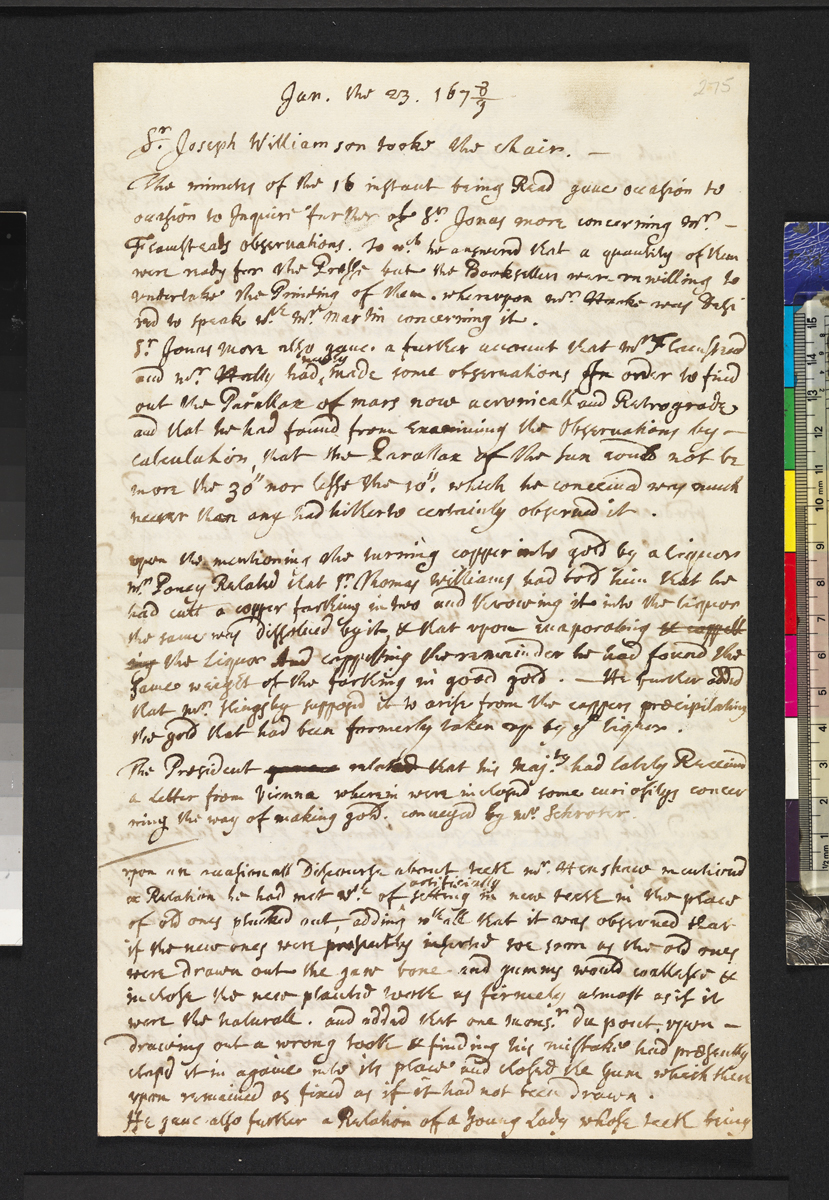 275
Jan. the 23. 167 8/9
Sr. Joseph Williamson tooke the chair. —
The minutes of the 16 instant being Read gaue occasion to
occasion to Inquire further of Sr Jonas more concerning mr. —
Flamsteads obseruations. to wch. he answerd that a quantity of them
were ready for the Presse but the Booksellers were unwilling to
undertake the Printing of them. whereupon mr. Hooke was Desi
red to speak wth. mr martin concerning it.
Sr. Jonas more also gaue a further account that mr Flamstead
and mr. Hally had newly made some obseruations In order to find
out the Parallax of mars now acronicall and Retrograde
and that he had found from Examining the Obseruations by —
calculation, that the Parallax of the sun could not be
more the 30" nor lesse the 10". which he conceiued was much
neerer than any had hitherto certainly obserued it.
upon the mentioning the turning copper into gold by a Liquor
mr. Pouey Related that Sr. Thomas Williams had told him that he
had cutt a copper farthing in two and throwing it into the liquor
the same was dissolued by it, & that upon euaporating & cuppell
ing the Liquor And cuppelling the remainder he had found the
same weight of the farthing in good gold. — He further added
that mr. Slingsby supposed it to arise from the coppers præcipitating
the gold that had been formerly taken up by ye liquor.
The President related that his Majty. had lately Receiued
a Letter from Vienna wherein were inclosed some curiositys concer
ning the way of making gold. conueyed by mr. Schroter.
upon an occasionall Discourse about teeth mr. Henshaw mentioned
a Relation he had met wth. of artificially setting in new teeth in the place
of old ones plucked out, adding withall that it was obserued that
if the new ones were presently inserted soe soon as the old ones
were drawn out the jaw bone and gumms would coallasce &
inclose the new planted teeth as firmely almost as if it
were the naturall. and added that one monsr. Du pont, upon —
drawing out a wrong tooth & finding his mistake had præsently
clapd it in againe into its place and closed the gum which there
upon remained as fixed as if it had not been drawn.
He gaue also further a Relation of a young Lady whose teeth being